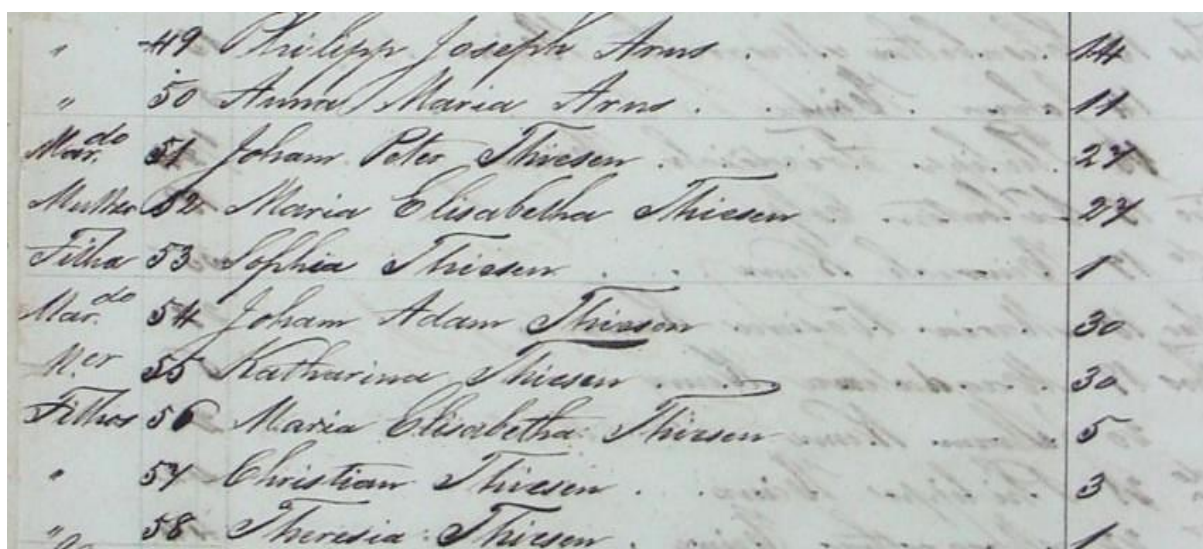 " 49 Philipp Joseph Arns . 14
" 50 Anna Maria Arns . . . . 11
Mar.do 51 Joham Peter Thiesen . . . . 27
Mulher 52 Maria Elisabetha Thiesen . . . 27
Filha 53 Sophia Thiesen . . . . 1
Mar.do 54 Joham Adam Thiesen 30
M.er 55 Katharina Thiesen . . . 30
Filhos 56 Maria Elisabetha Thiesen 5
" 57 Christian Thiesen . . . 3
" 58 Theresia Thiesen . . . 1